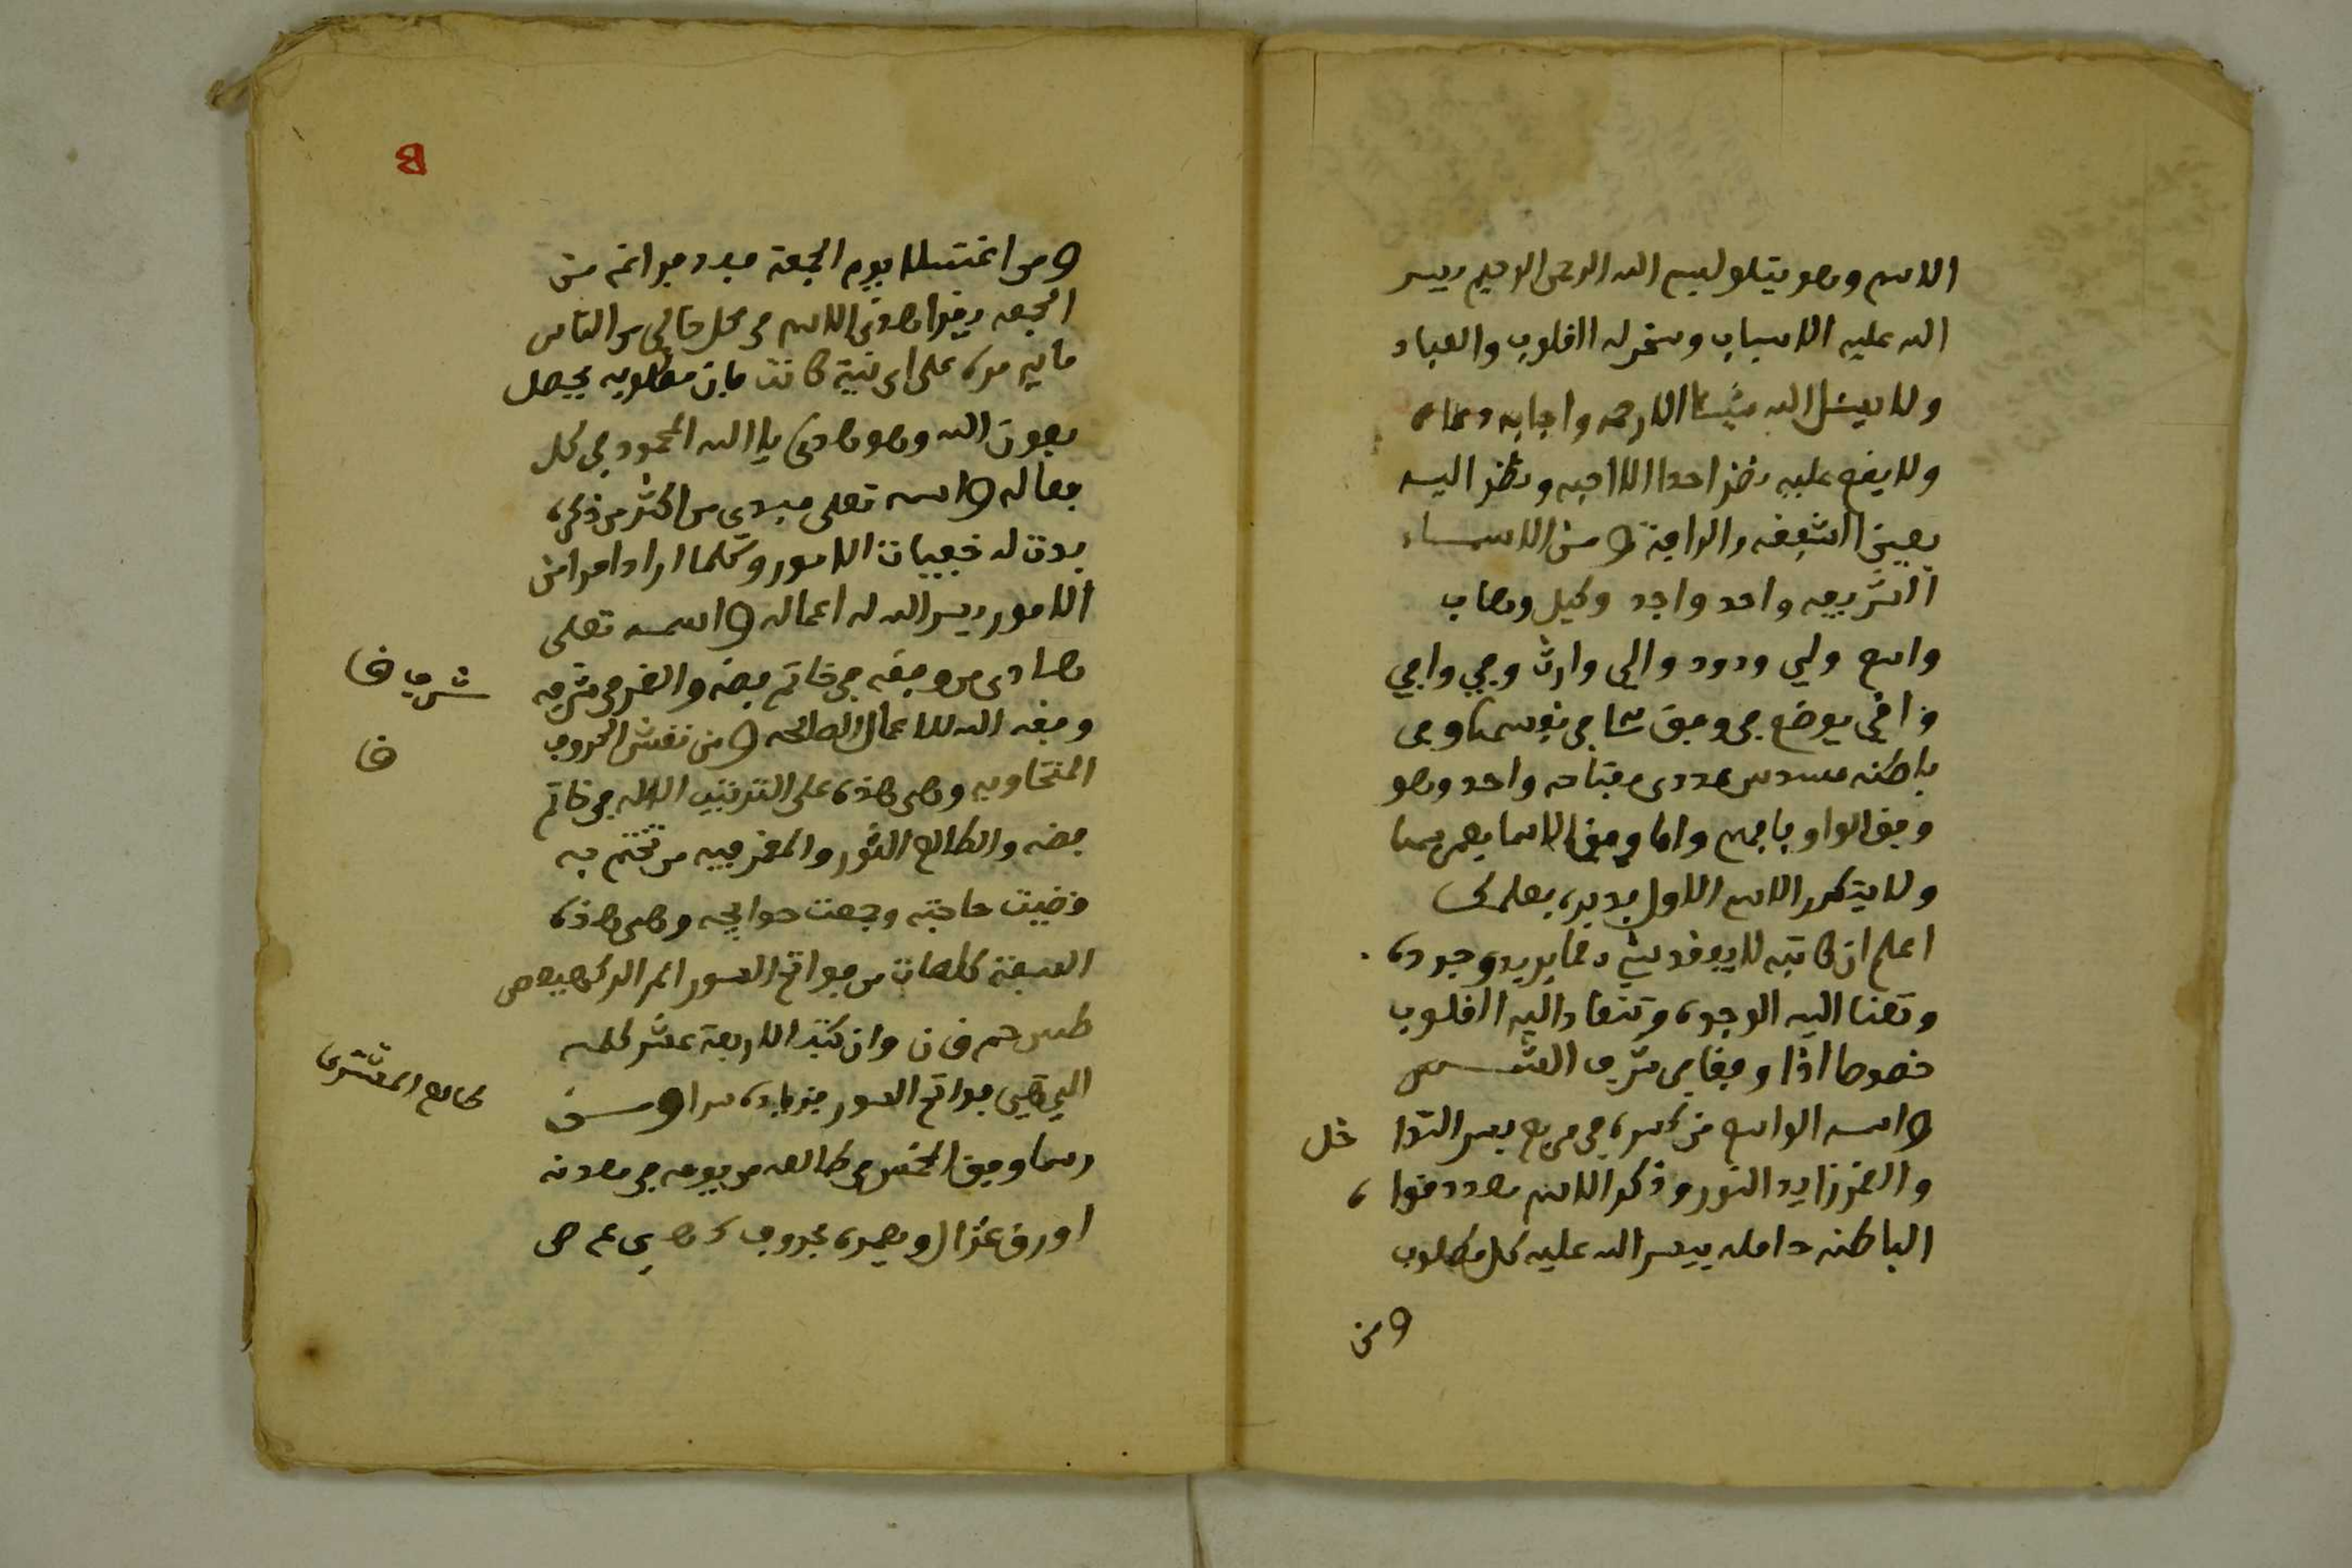 الاسم وهو يتلو بسم الله الرحمن الرحيم ييسر
الله عليه الاسباب وسخر له القلوب والعباد
ولا يسئل الله شيئا الا رحمه واجابه دعاه
ولا يقع عليه نظر احدا الا احبه ونظر اليه
بعين الشفقه والرافة ومن الاسماء
الشريفه واحد واجد وكيل وهاب
واسع ولي ودود والي وارث
يوضع في وفق
باطنه مسدس عددى مفتاحه واحد وهو
وفق الواو فافهم واما وفق الاسما
ولا يتكرر الاسم الاول
اعلم ان كاتبه لا يفقد شي مما يريد وجوده
اليه الوجوه وتنقاد اليه القلوب
خصوصا اذا وفقا في شرف الشمس
واسمه الواسع من كسره في مربع بسر التدا خل
والقمر زايد النور وذكر الاسم بعدد قواه
الباطنه حامله ييسر الله عليه كل مطلوب
ومن
ومن اغتسل يوم الجمعة بعد فراغه من
الجمعه ويقرا هذا الاسم في محل خالي من الناس
مايه مره على اي نية كانت فان مطلوبه يحصل
بعون الله وهو هادى يا الله المحمود في كل
فعاله واسمه تعلى مبدي من اكثر من ذكره
بدت له خفيات الامور وكلما اراد امرا من
الامور ييسر الله له اعماله واسمه تعلى
هادى من وفقه في خاتم فضه والقمر في شرفه
وفقه الله للاعمال الصالحه ومن نقش الحروف
شرف
وهى هذه على الترتيب في خاتم
فضه والطالع الثور والقمر فيه من تختم به
قضيت حاجته وجمعت حوايجه وهى هذه
السبعة كلمات من فواتح السور الم الر كهيعص
طس حم ق ن وان كتب الاربعة عشر كلمه
التي هي فواتح السور
طالع المشترى
رسما وفق المخمس في طالعه من يومه في معدنه
اورق غزال وعمره بحروف ك ه ي ع ص